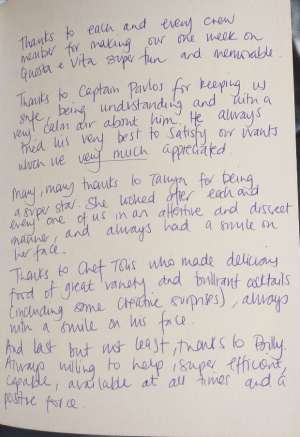 Thanks to each and every crew
member for making our one week on
Questa e Vita super fun and memorable.
Thanks to Captain Pavlos for keeping us
safe, being understanding and with a
very calm air about him. He always
tried his very best to satisfy our wants
which we very much appreciated.
Many, many thanks to for being
a super star. She looked after each and
every one of us in an attentive and discreet
manner, and always had a smile on
her face.
Thanks to Chef who made delicious
food of great variety and brilliant cocktails
(including some creative surprises), always
with a smile on his face.
And last but not least, thanks to Billy.
Always willing to help, super efficient,
capable, available at all times and a
positive force.